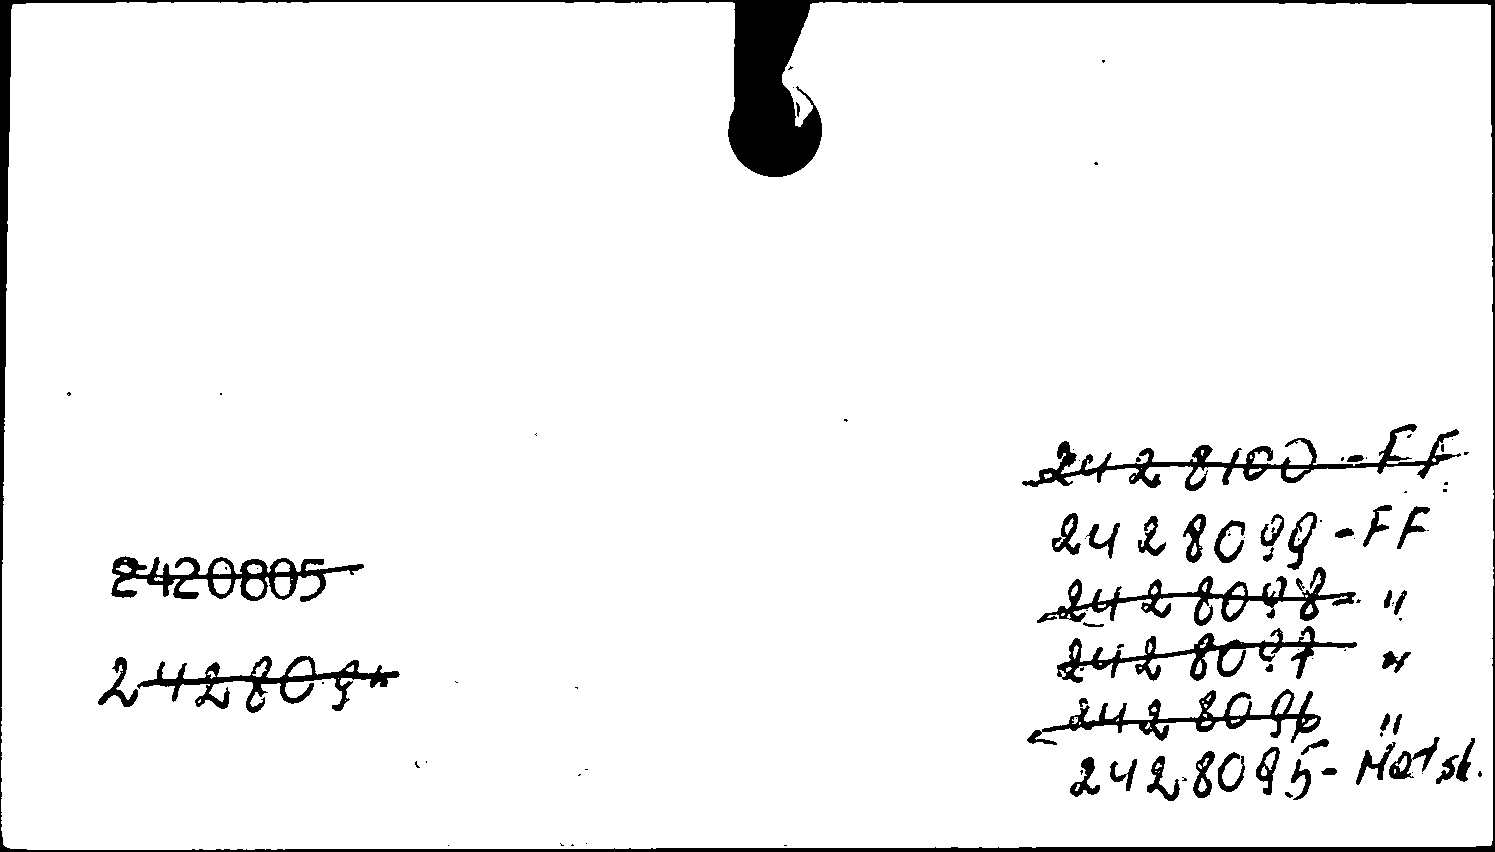 2420805
2428100 - FF
2428099 - FF
2428098 - "
2428097 "
2428096 "
2428095 -